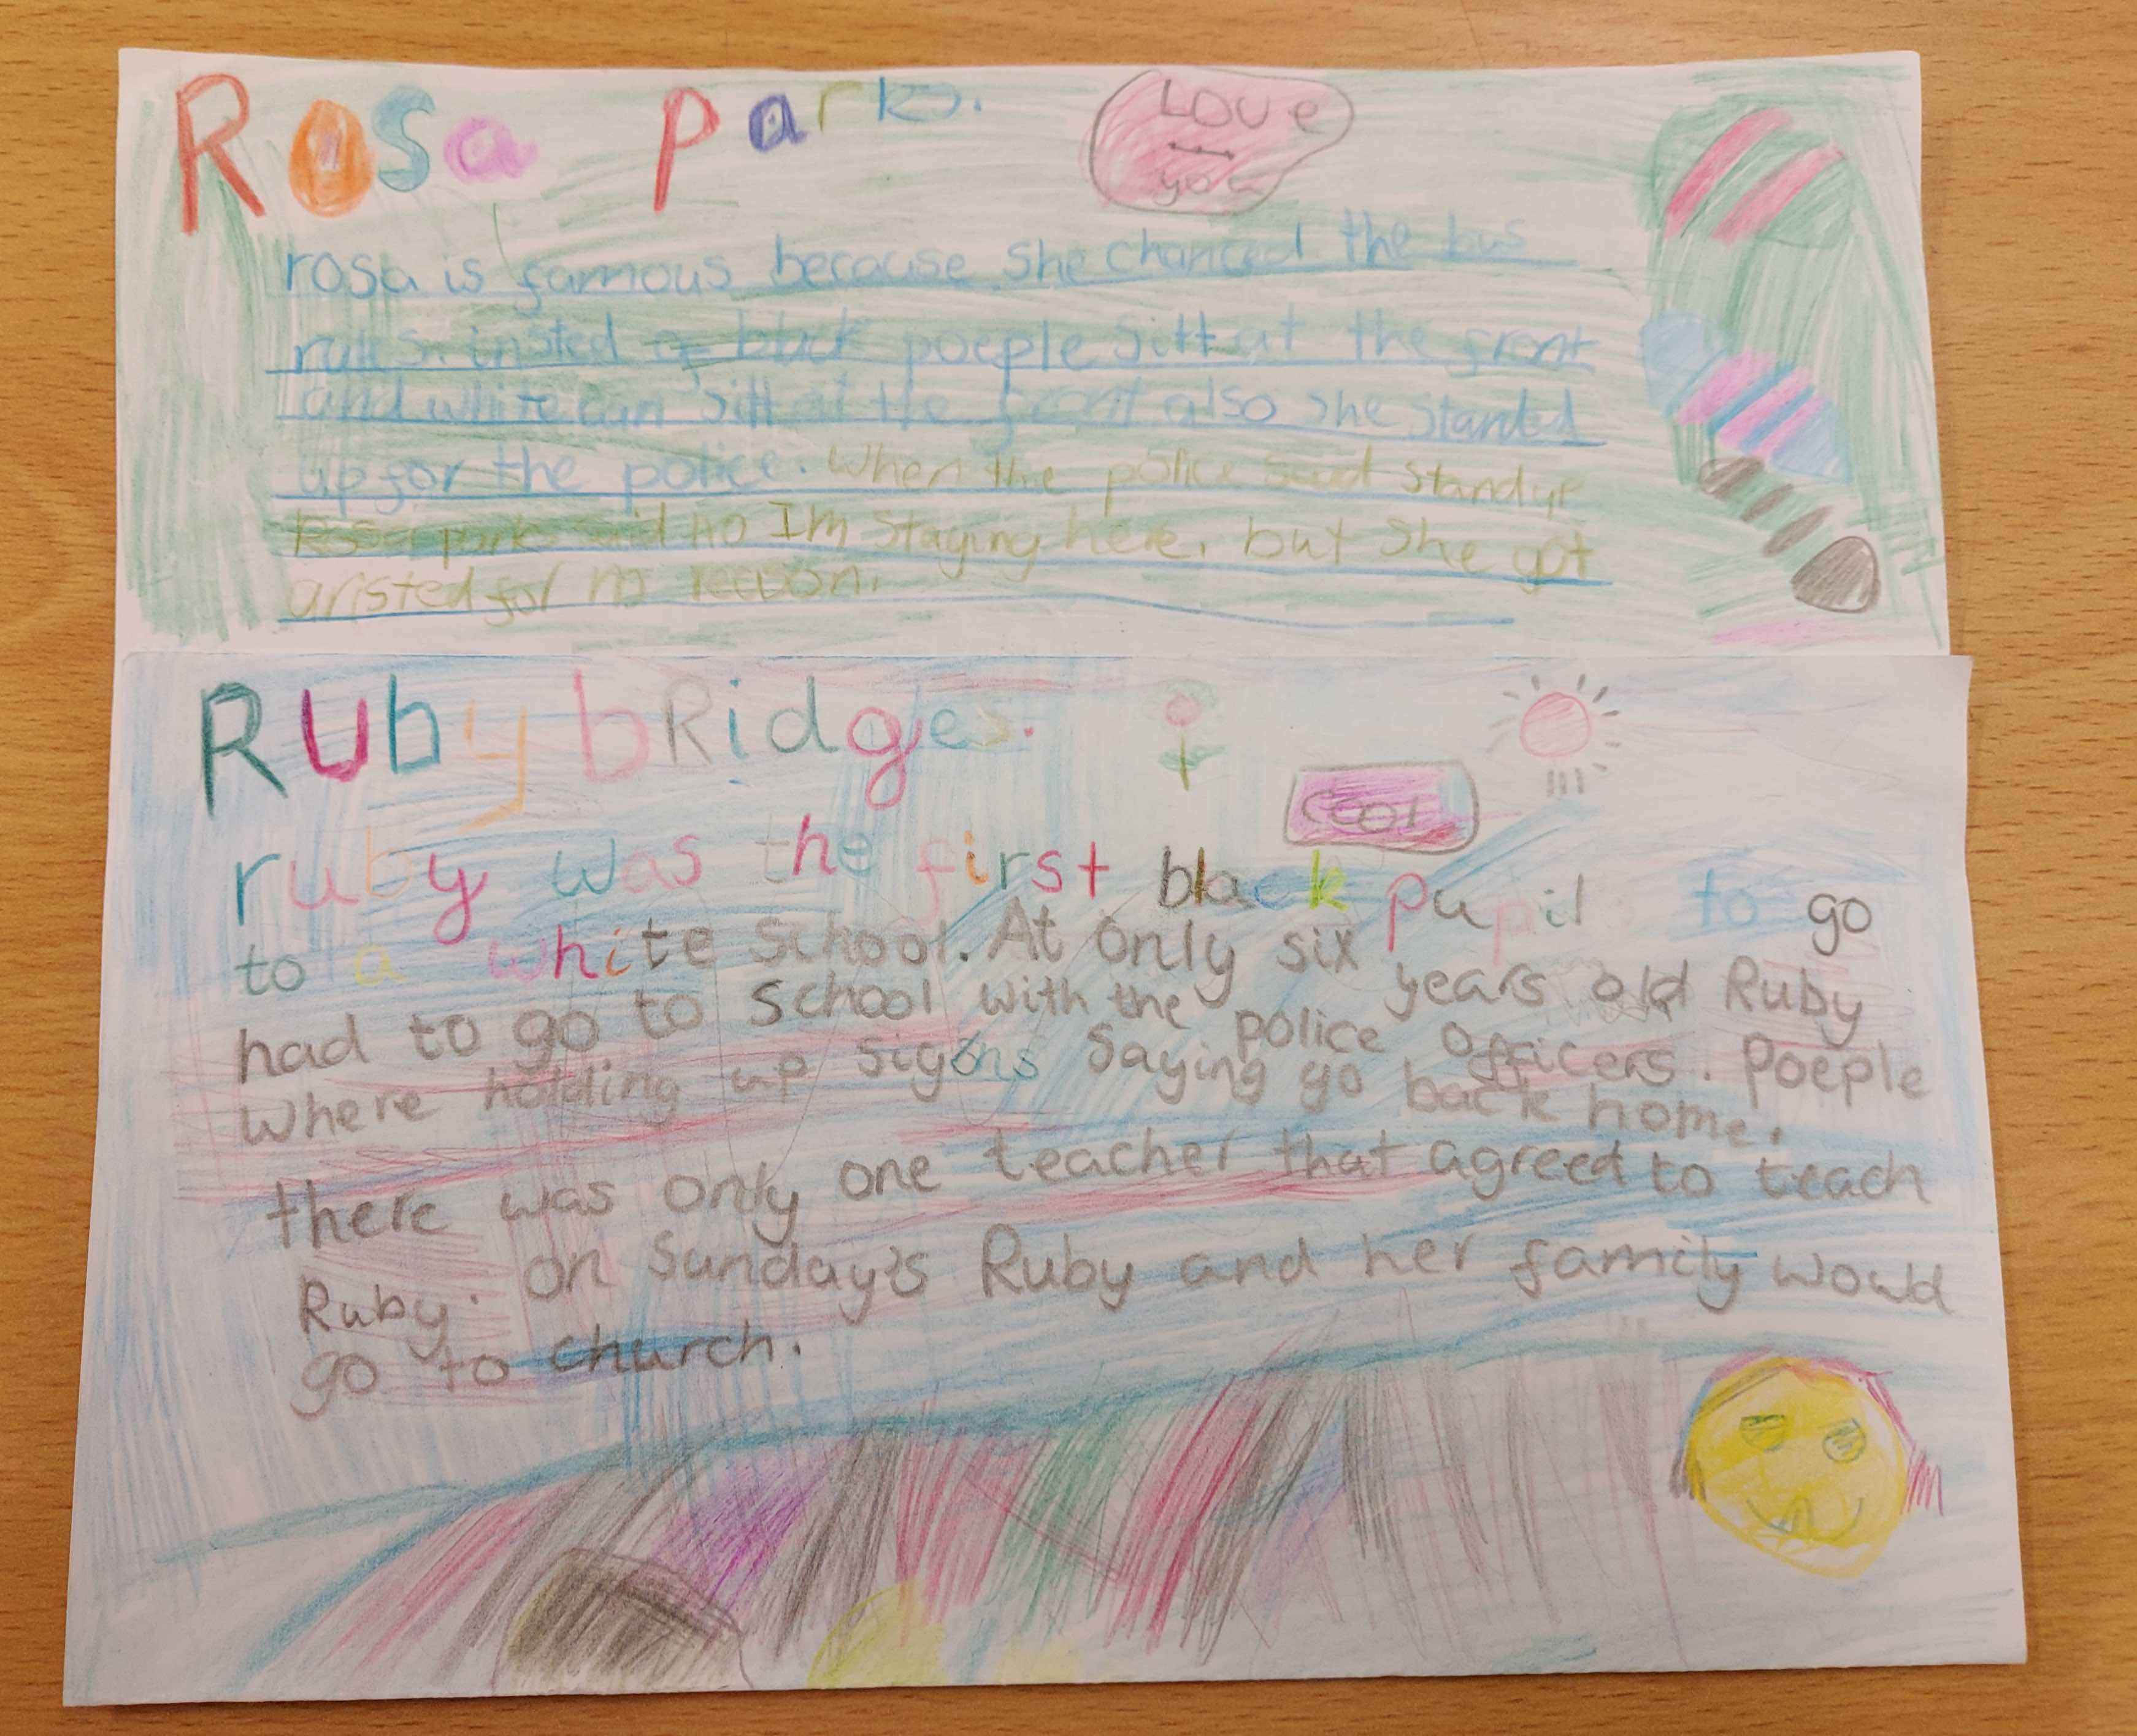 Rosa Parks.
Love you
rosa is famous because she chanced the bus
rules. insted of black poeple sitt at the front
and white can sitt at the front also she standed
up for the police. When the police said stand up
Rosa parks said no Im staying here. but she got
aristed for no reason.
Ruby bRidges.
cool
ruby was the first black pupil to go
to a white School. At only six years old Ruby
had to go to School with the police officers. Poeple
where holding up sigons Saying go back home.
there was only one teacher that agreed to teach
Ruby. on Sunday's Ruby and her family would
go to church.